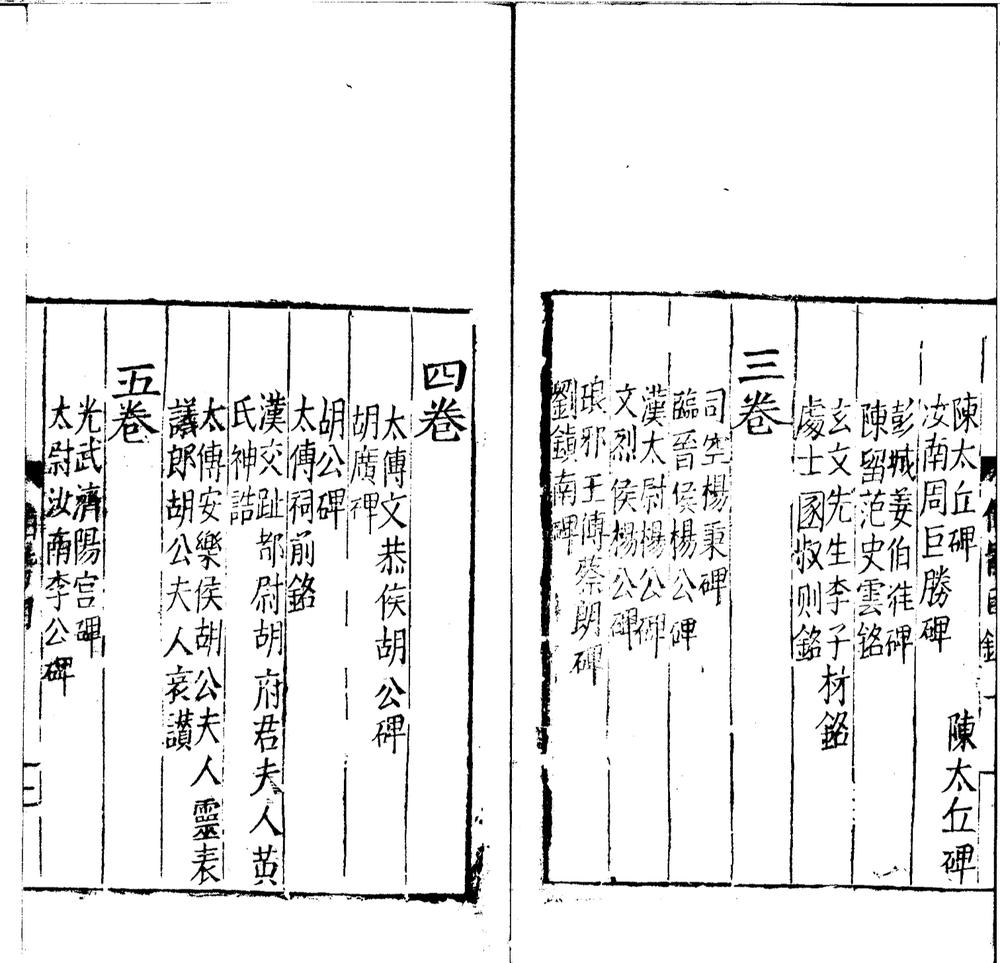 陳太丘碑　陳太丘碑
汝南周巨勝碑
彭城姜伯淮碑
陳留范史雲銘
玄文先生李子材銘
處士圂叔則銘
三卷
司空楊秉碑
臨晉侯楊公碑
漢太尉楊公碑
文烈侯楊公碑
琅邪王傅蔡朗碑
劉鎮南碑
四卷
太傅文恭侯胡公碑
胡廣碑
胡公碑
太傅祠前銘
漢交趾都尉胡府君夫人黄
氏神誥
太傅安樂侯胡公夫人靈表
議郎胡公夫人哀讃
五卷
光武濟陽宫碑
太尉汝南李公碑